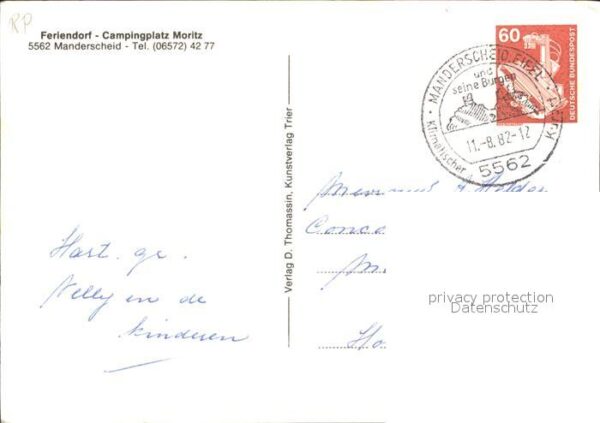 RP
Feriendorf - Campingplatz Moritz
5562 Manderscheid - Tel. (06572) 42 77
60
DEUTSCHE BUNDESPOST
MANDERSCHEID, EIFEL
und
seine Burgen
Klimatischer
11.-8.82-12
5562
Verlag D. Thomassin, Kunstverlag Trier
Hart. ge.
Nelly en de
kinderen
Conco
M.
Ho
privacy protection
Datenschutz